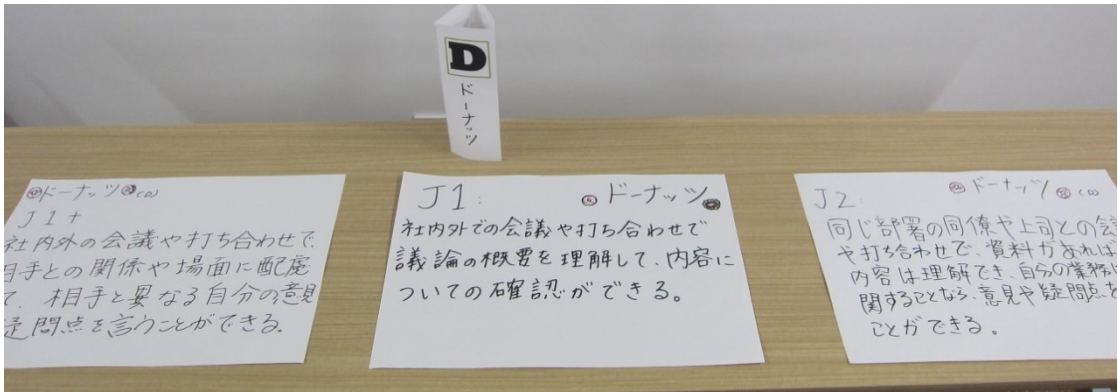 D
ドーナッツ
ドーナッツ(D)
J1+
社内外の会議や打ち合わせで、
目手との関係や場面に配慮
て、相手と異なる自分の意見
疑問点を言うことができる。
J1: ドーナッツ
社内外での会議や打ち合わせで
議論の概要を理解して、内容に
ついての確認ができる。
J2: ドーナッツ(D)
同じ部署の同僚や上司との会議
や打ち合わせで、資料があれば
内容は理解でき、自分の業務に
関することなら、意見や疑問点を
ことができる。